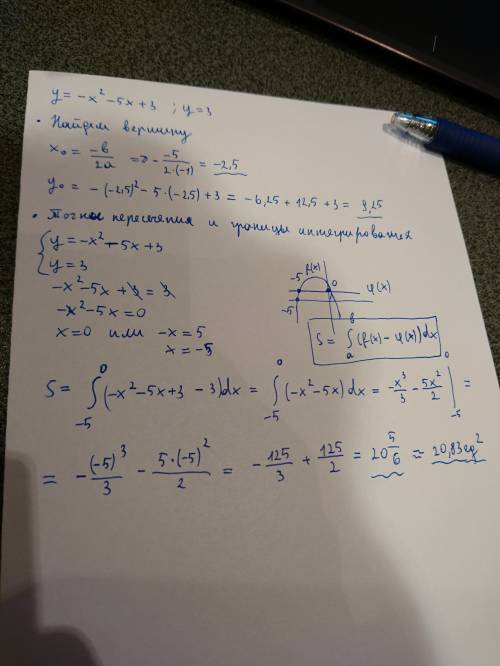 y = -x² - 5x + 3 ; y = 3
• Найдем вершину
x₀ = -b/2a => - -5/2·(-1) = -2,5
y₀ = -(-2,5)² - 5·(-2,5) + 3 = -6,25 + 12,5 + 3 = 9,25
• Точки пересечения и границы интегрирования
{ y = -x² - 5x + 3
y = 3
-x² - 5x + 3 = 3
-x² - 5x = 0
x = 0 или -x = 5
x = -5
f(x)
-5 0 φ(x)
-5
S = ∫ₐᵇ (f(x) - φ(x)) dx
S = ∫₋₅⁰ (-x² - 5x + 3 - 3) dx = ∫₋₅⁰ (-x² - 5x) dx = -x³/3 - 5x²/2 |₋₅⁰ =
= -(-5)³/3 - 5·(-5)²/2 = -125/3 + 125/2 = 20 5/6 ≈ 20,83 eq²